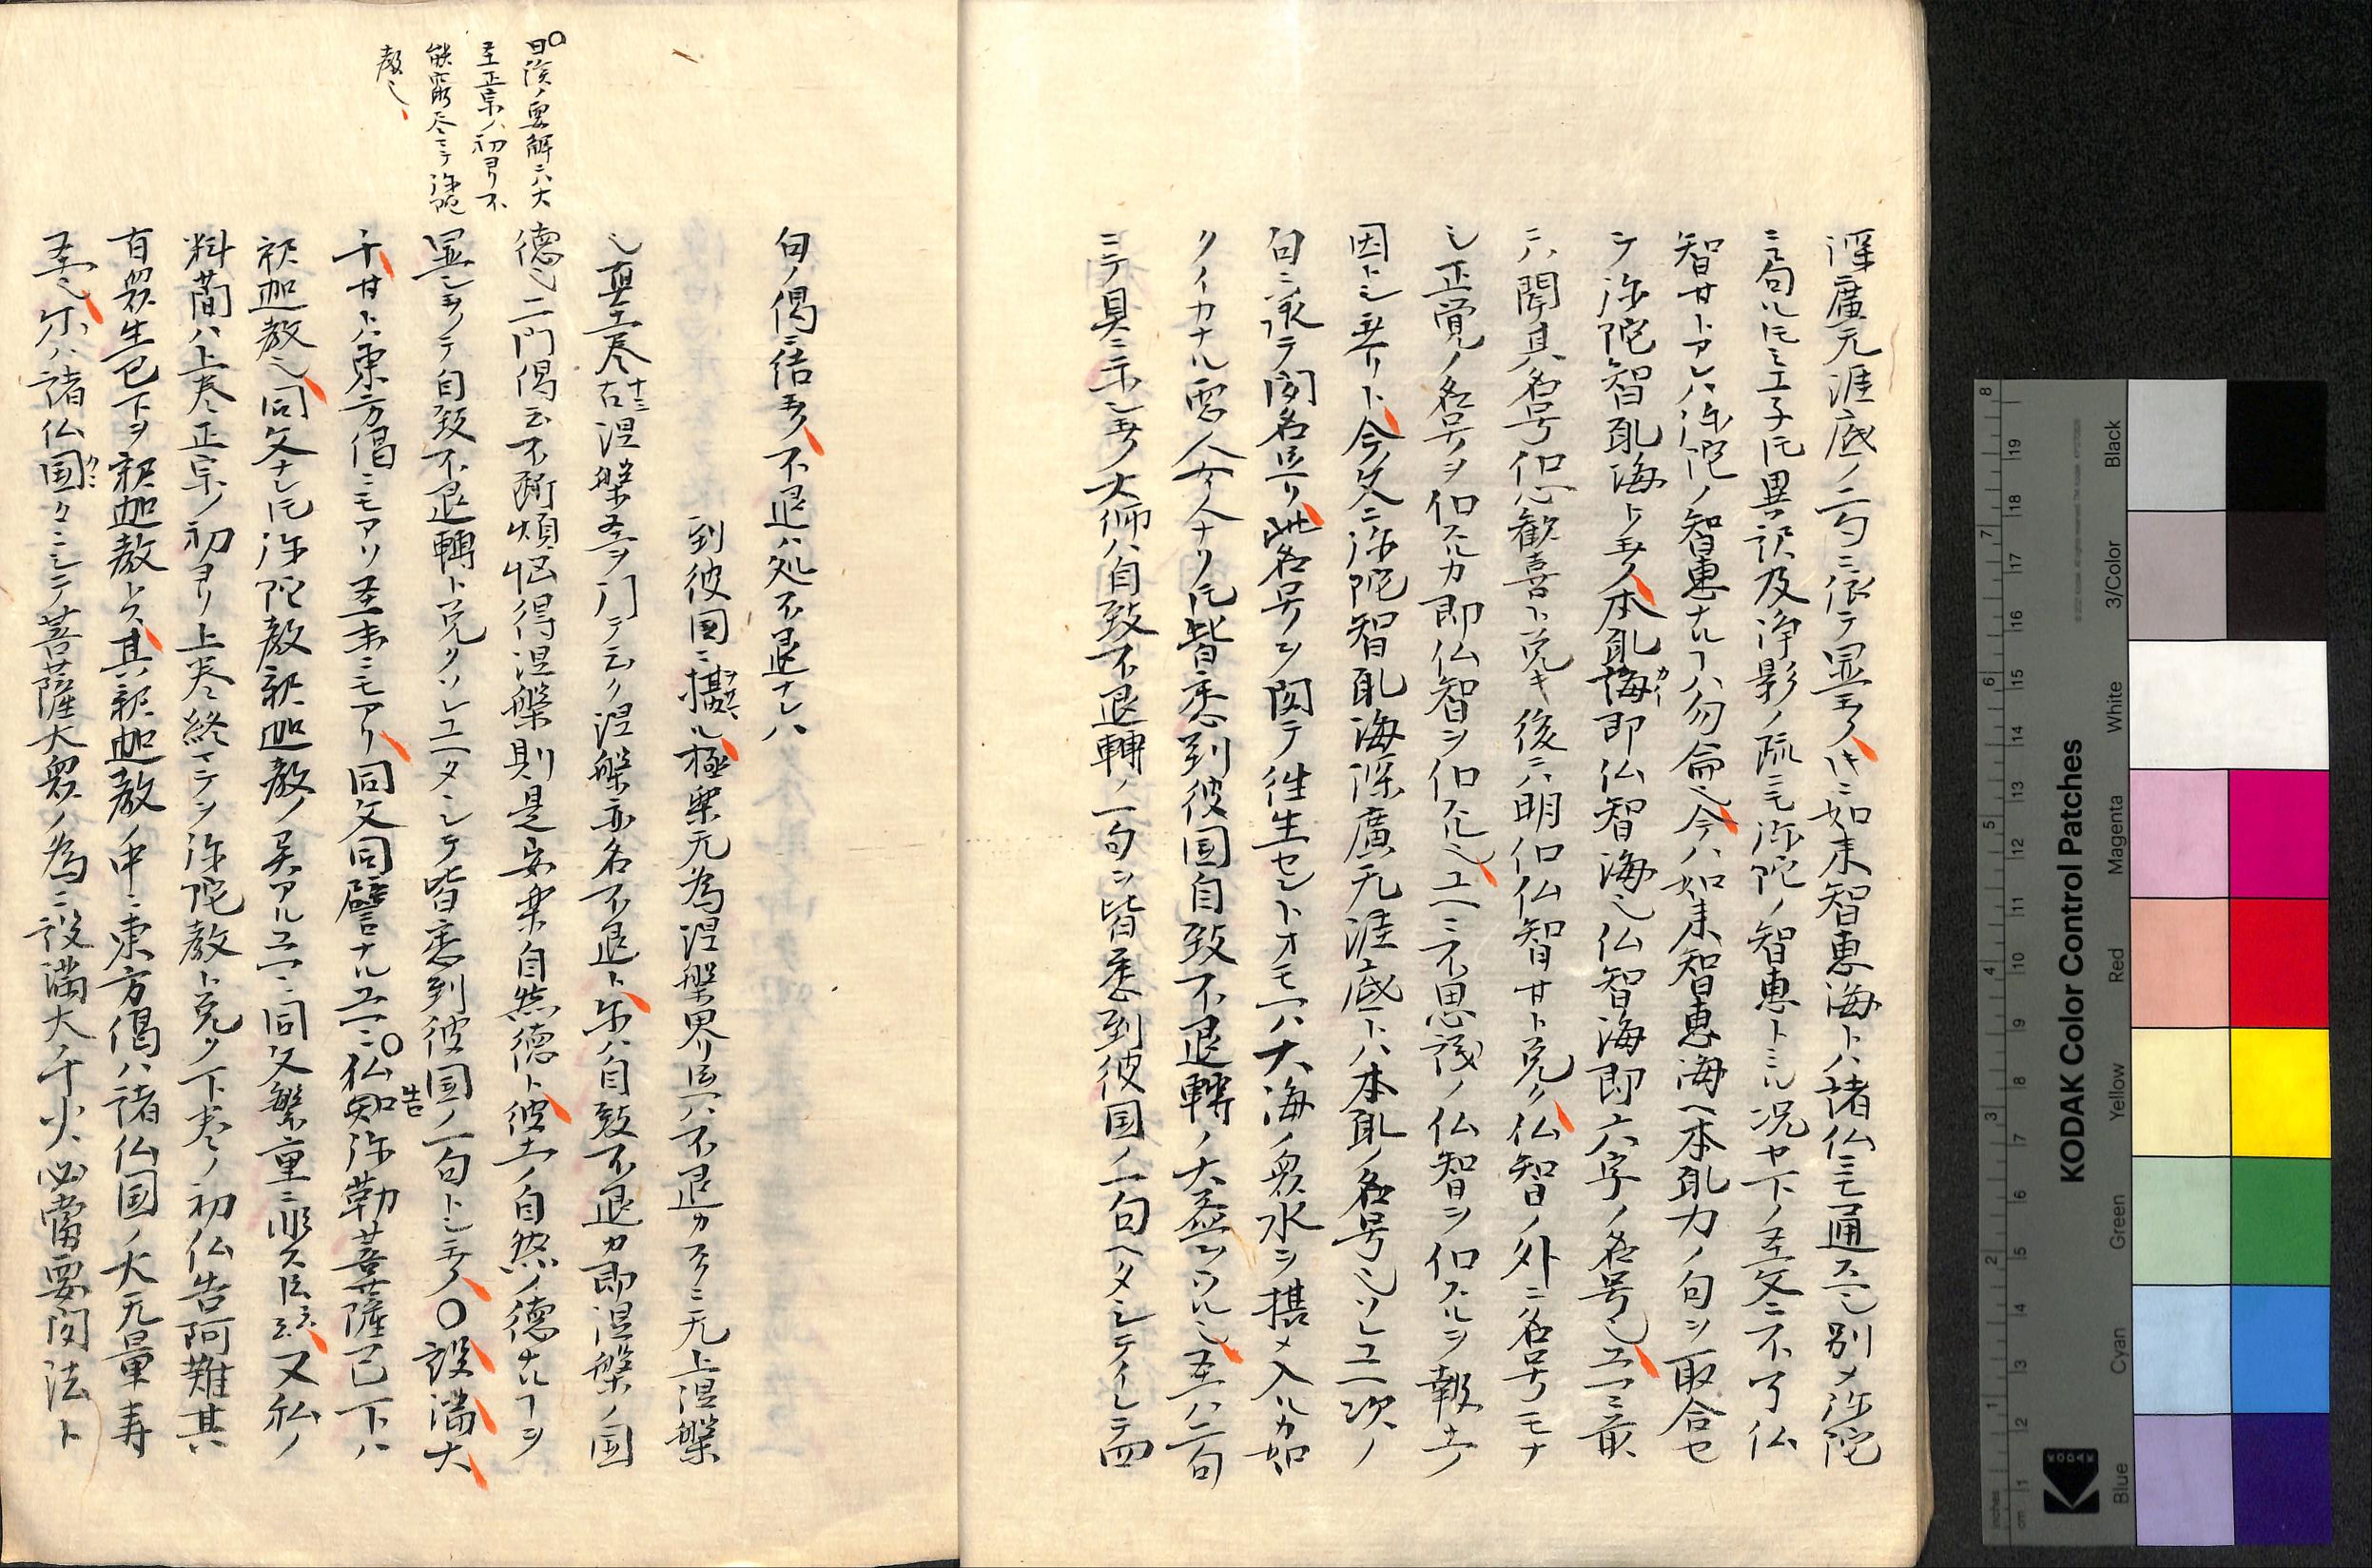 深廣无涯底ノ二句ニ依テ显玉ヘリ如来智恵海トハ諸仏ニモ通スレ𪜈別メ弥陀
ニ句ル𪜈ミエ子𪜈異訳及浄影ノ疏ニモ弥陀ノ智恵トミル況ヤ下ノ至文ニ不了仏
智甘トアレハ弥陀ノ智恵ナルヿハ勿侖也今ハ如来智恵海ヘ本𫝆力ノ句ヲ取合セ
テ弥陀智𫝆海ト玉ヘリ本𫝆海即仏智海也仏智海即六字ノ名号也ユヘニ最
ニハ聞其名号信心歓喜ト説キ後ニハ明信仏智甘ト説ク仏智ノ外ニ名号モナ
シ正覚ノ名号ヲ信スルカ即仏智ヲ信スル也ユヘニ不思議ノ仏智ヲ信スルヲ報土ノ
因トシ玉ヘリト今文ニ弥陀智𫝆海深廣无涯底トハ本𫝆ノ名号也ソレユヘ次ノ
句ニ承テ聞名玉ヘリ此名号ヲ聞テ往生セントオモヘハ大海ノ衆水ヲ摂メ入ルカ如
クイカナル悪人女人ナリ𪜈皆悉到彼国自致不退轉ノ大益ヲウル也至ハ二句
ニテ具ニ示シ玉ヘリ大師ハ自致不退轉ノ一句ヲ皆悉到彼国ノ一句ヘタメシテイレテ四
句ノ偈ニ結玉ヘリ不退ハ処不退ナレハ
到彼国ニ摂ル極楽无為涅槃界ヘ至ハ不退カスクニ无上涅槃
也真土巻十三右涅槃至ヲ門テ云ク涅槃亦名不退ト尓ハ自致不退カ即涅槃ノ国
徳也二門偈云不断煩悩得涅槃則是安楽自然徳ト彼土ノ自然ノ徳ナルヿヲ
显シ玉ヒテ自致不退轉ト説クソレユヘタメシテ皆悉到彼国ノ一句トシ玉ヘリ〇設満大
千甘トハ東方偈ニモアリ至末ニモアリ同文同譬ナルユヘニ〇仏告弥勒菩薩已下ハ
釈迦教也同文ナレ𪜈弥陀教釈迦教ノ異アルユヘニ同文繁重ニ非ス又私ノ
料蕳ハ上巻正宗ノ初ヨリ上巻終マテヲ弥陀教ト説ク下巻ノ初仏告阿難其
有衆生已下ヲ釈迦教トス其釈迦教ノ中ニ東方偈ハ諸仏国ノ大无量寿
至也尓ハ諸仏国々ニシテ菩薩大衆ノ為ニ設満大千火必當要聞法ト
〇曰渓ノ要解ニハ大
至正宗ノ初ヨリ不
能窮尽マテ弥陀
教也
KODAK Color Control Patches
Blue Cyan Green Yellow Red Magenta White 3/Color Black
KODAK
inches 1 2 3 4 5 6 7 8
cm 1 2 3 4 5 6 7 8 9 10 11 12 13 14 15 16 17 18 19